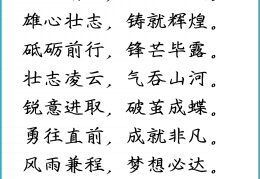 雄心壮志，铸就辉煌。
砥砺前行，锋芒毕露。
壮志凌云，气吞山河。
锐意进取，破茧成蝶。
勇往直前，成就非凡。
风雨兼程，梦想必达。